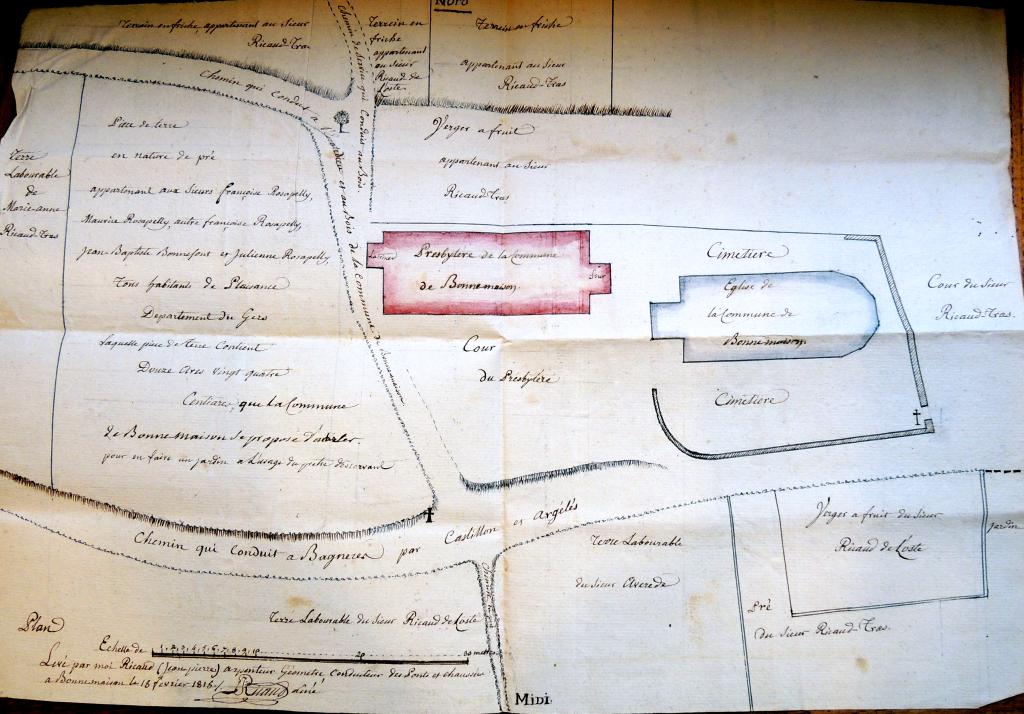 Nord
Terrein en friche, appartenant au Sieur
Ricaud-Tras
Chemin de Service qui Conduit au Bois
Terrein en
friche
appartenant
au Sieur
Ricaud de
Loste
Terrein en friche
appartenant au Sieur
Ricaud-Tras
Chemin qui Conduit a et au Bois de la Commune de Bonnemaison
Terre
Labourable
de
Marie-anne
Ricaud-Tras
Piece de terre
en nature de pré
appartenant aux Sieurs françoise Rosapelly,
Maurice Rosapelly, autre françoise Rosapelly,
Jean-Baptiste Bonnefont et Julienne Rosapelly
Tous habitants de Plaisance
Departement du Gers
Laquelle piece de Terre Contient
Douze Ares vingt quatre
Centiares, que la Commune
de Bonnemaison Se propose d'acheter
pour en faire un jardin a L'usage du prêtre desservant
Verger a fruit
appartenant au Sieur
Ricaud-Tras
Presbytère de la Commune
de Bonnemaison
four
Cour
du Presbytère
Cimetiere
Eglise de
la Commune de
Bonnemaison
Cimetiere
Cour du Sieur
Ricaud-Tras.
Chemin qui Conduit a Bagneres par Castillon et Argélés
Terre Labourable
du Sieur
Verger a fruit du Sieur
Ricaud de Loste
jardin
Pré
du Sieur Ricaud-Tras.
Terre Labourable du Sieur Ricaud de Loste
Plan
Echelle de
Levé par moi Ricaud (Jean pierre) arpenteur Géometre, Conducteur des Ponts et chaussées
a Bonnemaison le 15 fevrier 1818
Ricaud ainé
Midi